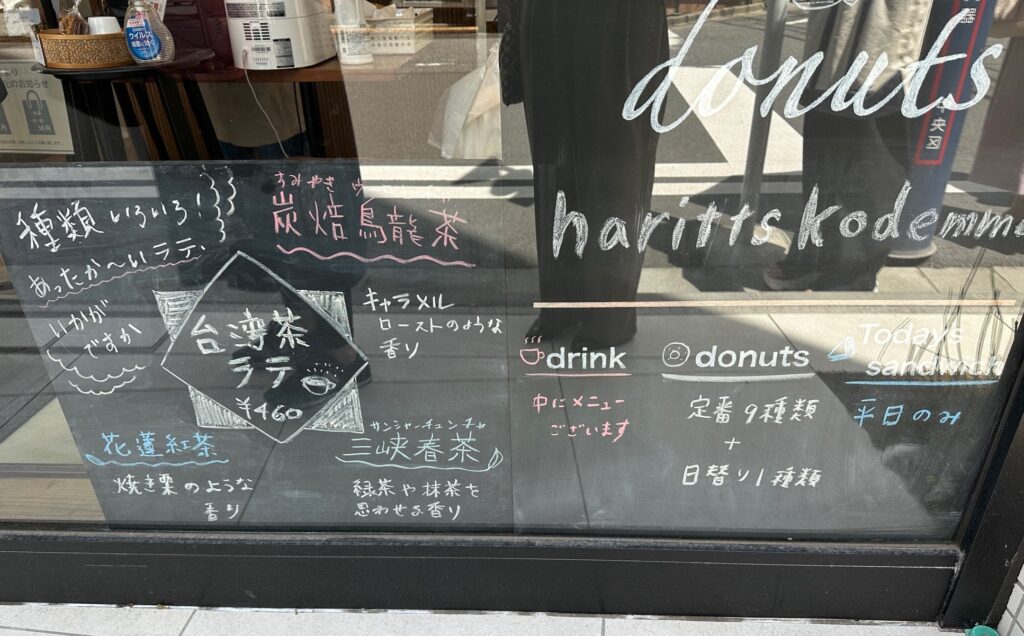 donuts
haritts kodemma
種類いろいろ!
あったか〜いラテ、
いかが
ですか
すみやき
炭焙烏龍茶
キャラメル
ローストのような
香り
台湾茶
ラテ
¥460
花蓮紅茶
焼き栗のような
香り
サンシャーチュンチャ
三峡春茶
緑茶や抹茶を
思わせる香り
drink
中にメニュー
ございます
donuts
定番9種類
+
日替り1種類
Todays
sandwich
平日のみ
中央区
ウイルス